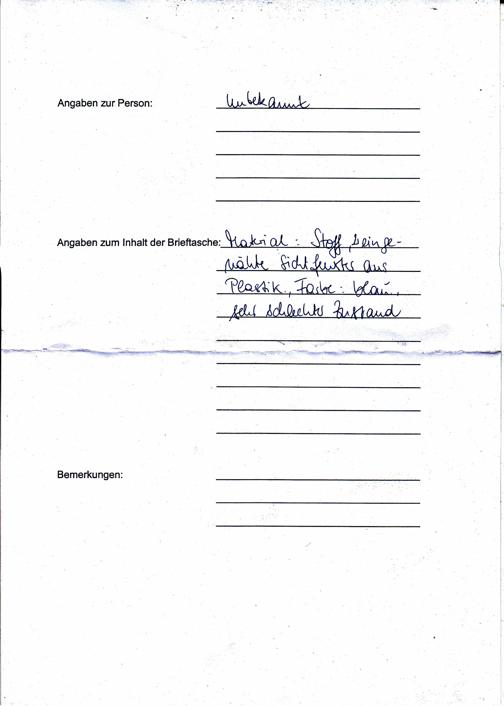 Angaben zur Person: Unbekannt
Angaben zum Inhalt der Brieftasche: Material: Stoff, einge-
nähte Sichtfenster aus
Plastik, Farbe: blau,
sehr schlechter Zustand
Bemerkungen: